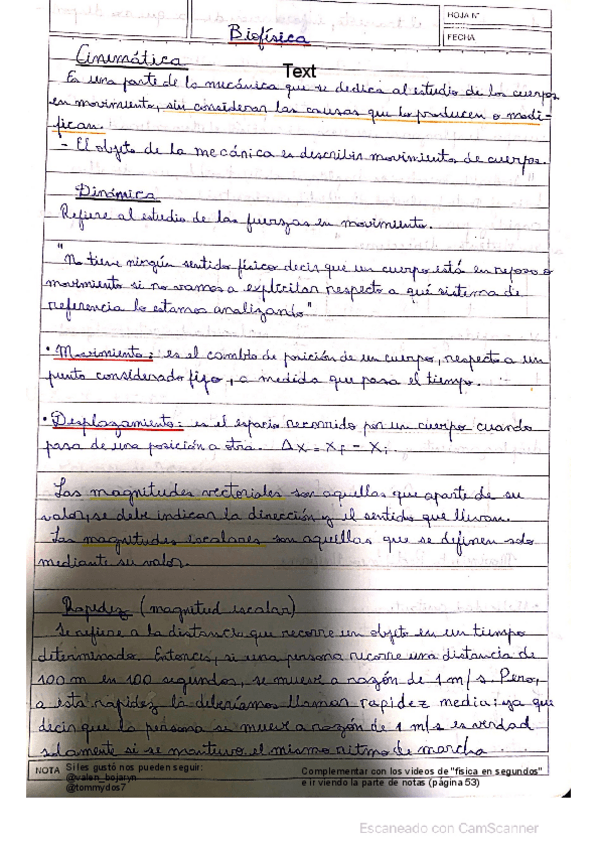 HOJA N°
FECHA
Biofísica
Cinemática
Text
Es una parte de la mecánica que se dedica al estudio de los cuerpos
en movimiento, sin considerar las causas que lo producen o modi-
fican.
- El objeto de la mecánica es describir movimiento de cuerpos.
Dinámica
Refiere al estudio de las fuerzas en movimiento.
"No tiene ningún sentido físico decir que un cuerpo está en reposo o
movimiento si no vamos a explicitar respecto a qué sistema de
referencia lo estamos analizando"
• Movimiento: es el cambio de posición de un cuerpo, respecto a un
punto considerado fijo, a medida que pasa el tiempo.
• Desplazamiento: es el espacio recorrido por un cuerpo cuando
pasa de una posición a otra. Δx = xf - xi
Las magnitudes vectoriales son aquellas que aparte de su
valor, se debe indicar la dirección y el sentido que llevan.
Las magnitudes escalares son aquellas que se definen solo
mediante su valor.
Rapidez (magnitud escalar)
Se refiere a la distancia que recorre un objeto en un tiempo
determinado. Entonces, si una persona recorre una distancia de
100 m en 100 segundos, se mueve a razón de 1 m/s. Pero,
a esta rapidez la deberíamos llamar rapidez media: ya que
decir que la persona se mueve a razón de 1 m/s es verdad
solamente si se mantuvo el mismo ritmo de marcha
NOTA Si les gustó nos pueden seguir:
@valen_bojaryn
@tommydos7
Complementar con los videos de "fisica en segundos"
e ir viendo la parte de notas (página 53)
Escaneado con CamScanner